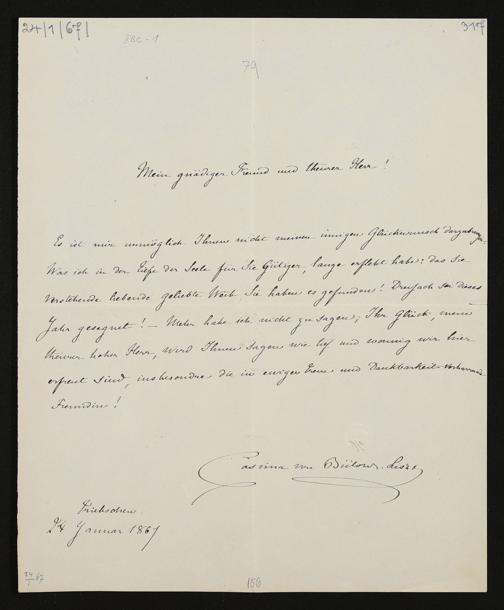 24/1/67/
317
BBC-1
79
Mein gnädiger Freund und theurer Herr!
Es ist mir unmöglich Ihnen nicht meinen innigen Glückwunsch darzubringen.
Was ich in der Tiefe der Seele für Sie Gütiger, lange erfleht habe: das Sie
verstehende liebende geliebte Weib Sie haben es gefunden! Dreifach sei dieses
Jahr gesegnet! — Mehr habe ich nicht zu sagen; Ihr Glück, mein
theurer hoher Herr, wird Ihnen sagen wie tief und wonnig wir hier
erfreut sind, insbesondre die in ewiger Treue und Dankbarkeit
Freundin!
Cosima von Bülow-Liszt
Triebschen
24 Januar 1867
24/1 67
156